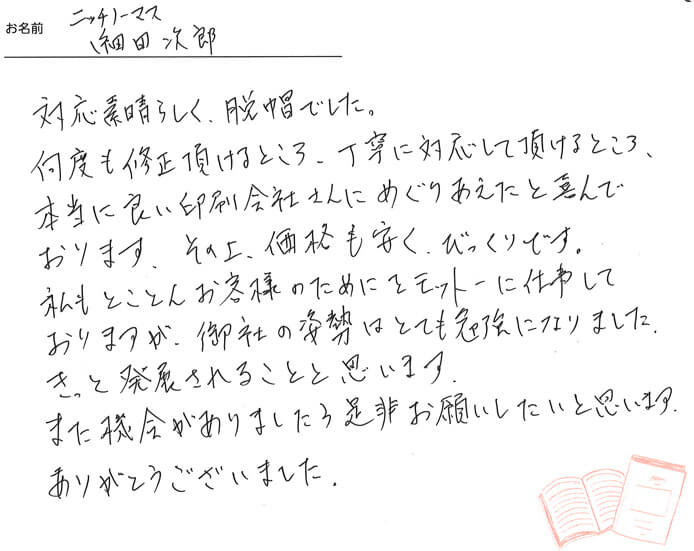 お名前
ニッチノーマス
細田次郎
対応素晴らしく、脱帽でした。
何度も修正頂けるところ、丁寧に対応して頂けるところ、
本当に良い印刷会社さんにめぐりあえたと喜んで
おります。その上、価格も安く、びっくりです。
私もとことんお客様のためにをモットーに仕事して
おりますが、御社の姿勢はとても勉強になりました。
きっと発展されることと思います。
また機会がありましたら是非お願いしたいと思います。
ありがとうございました。